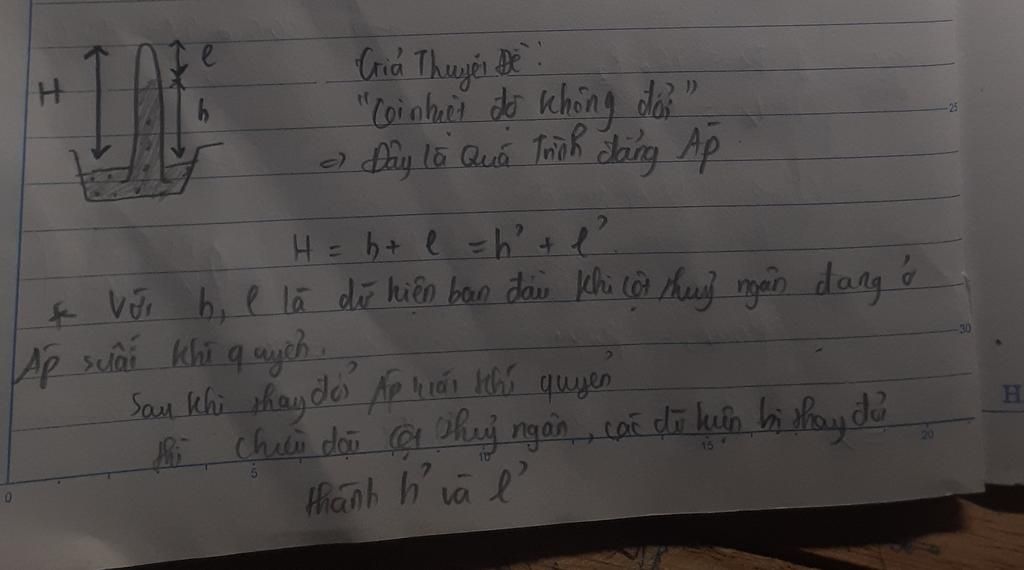 H
l
h
Giả Thuyết Đề:
"Coi nhiệt độ không đổi"
=> Đây là Quá trình đẳng Áp
25
H = h + l = h' + l'
* Với h, l là dữ kiện ban đầu khi cột thuỷ ngân đang ở
30
Áp suất khí quyển.
Sau khi thay đổi Áp suất khí quyển
H
thì chiều dài cột thuỷ ngân, các dữ kiện bị thay đổi
0 5 10 15 20
thành h' và l'